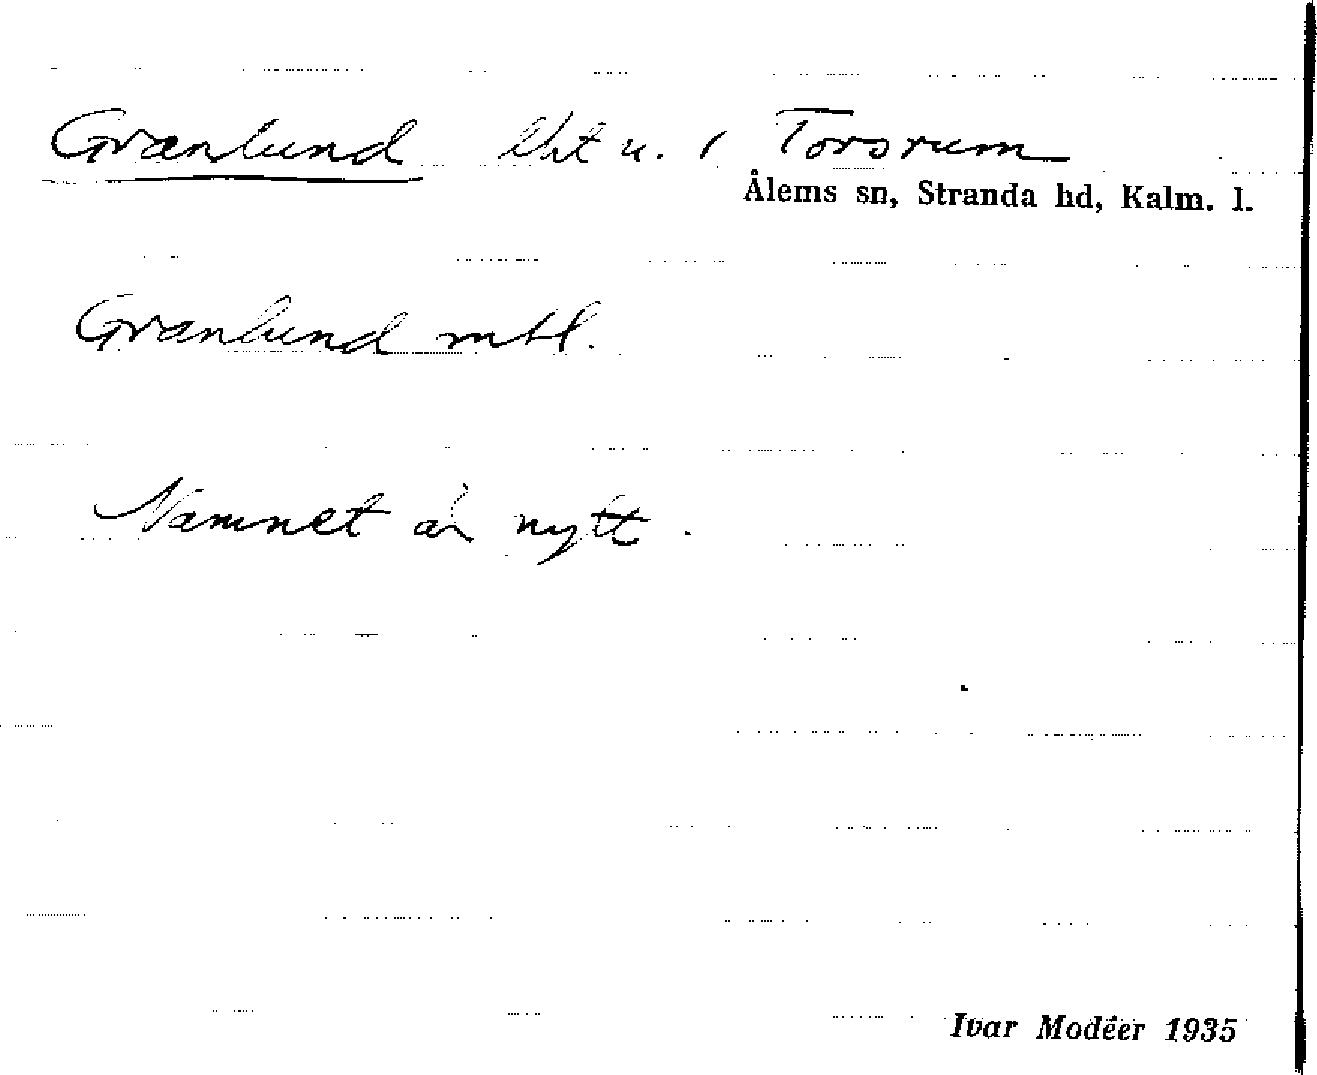 Granlund lht u. 1 Torsrum
Ålems sn, Stranda hd, Kalm. l.
Granlund mtl.
Namnet är nytt.
Ivar Modéer 1935